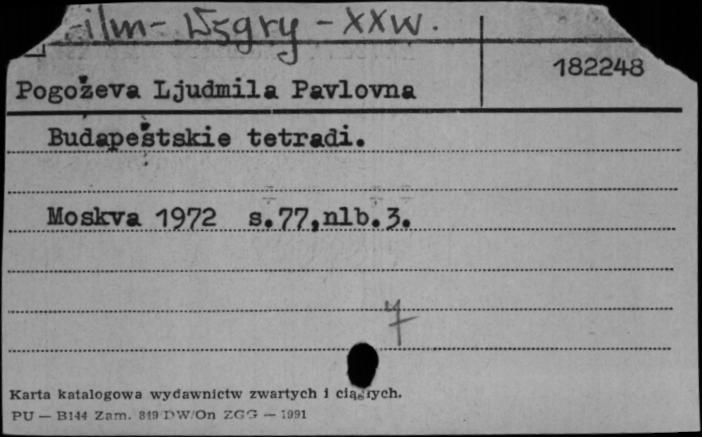 -ilm - Węgry - XX w.
182248
Pogoževa Ljudmila Pavlovna
Budapeštskie tetradi.
Moskva 1972 s.77,nlb.3.
Karta katalogowa wydawnictw zwartych i ciągłych.
PU — B144 Zam. 819 DW/On ZGG — 1991